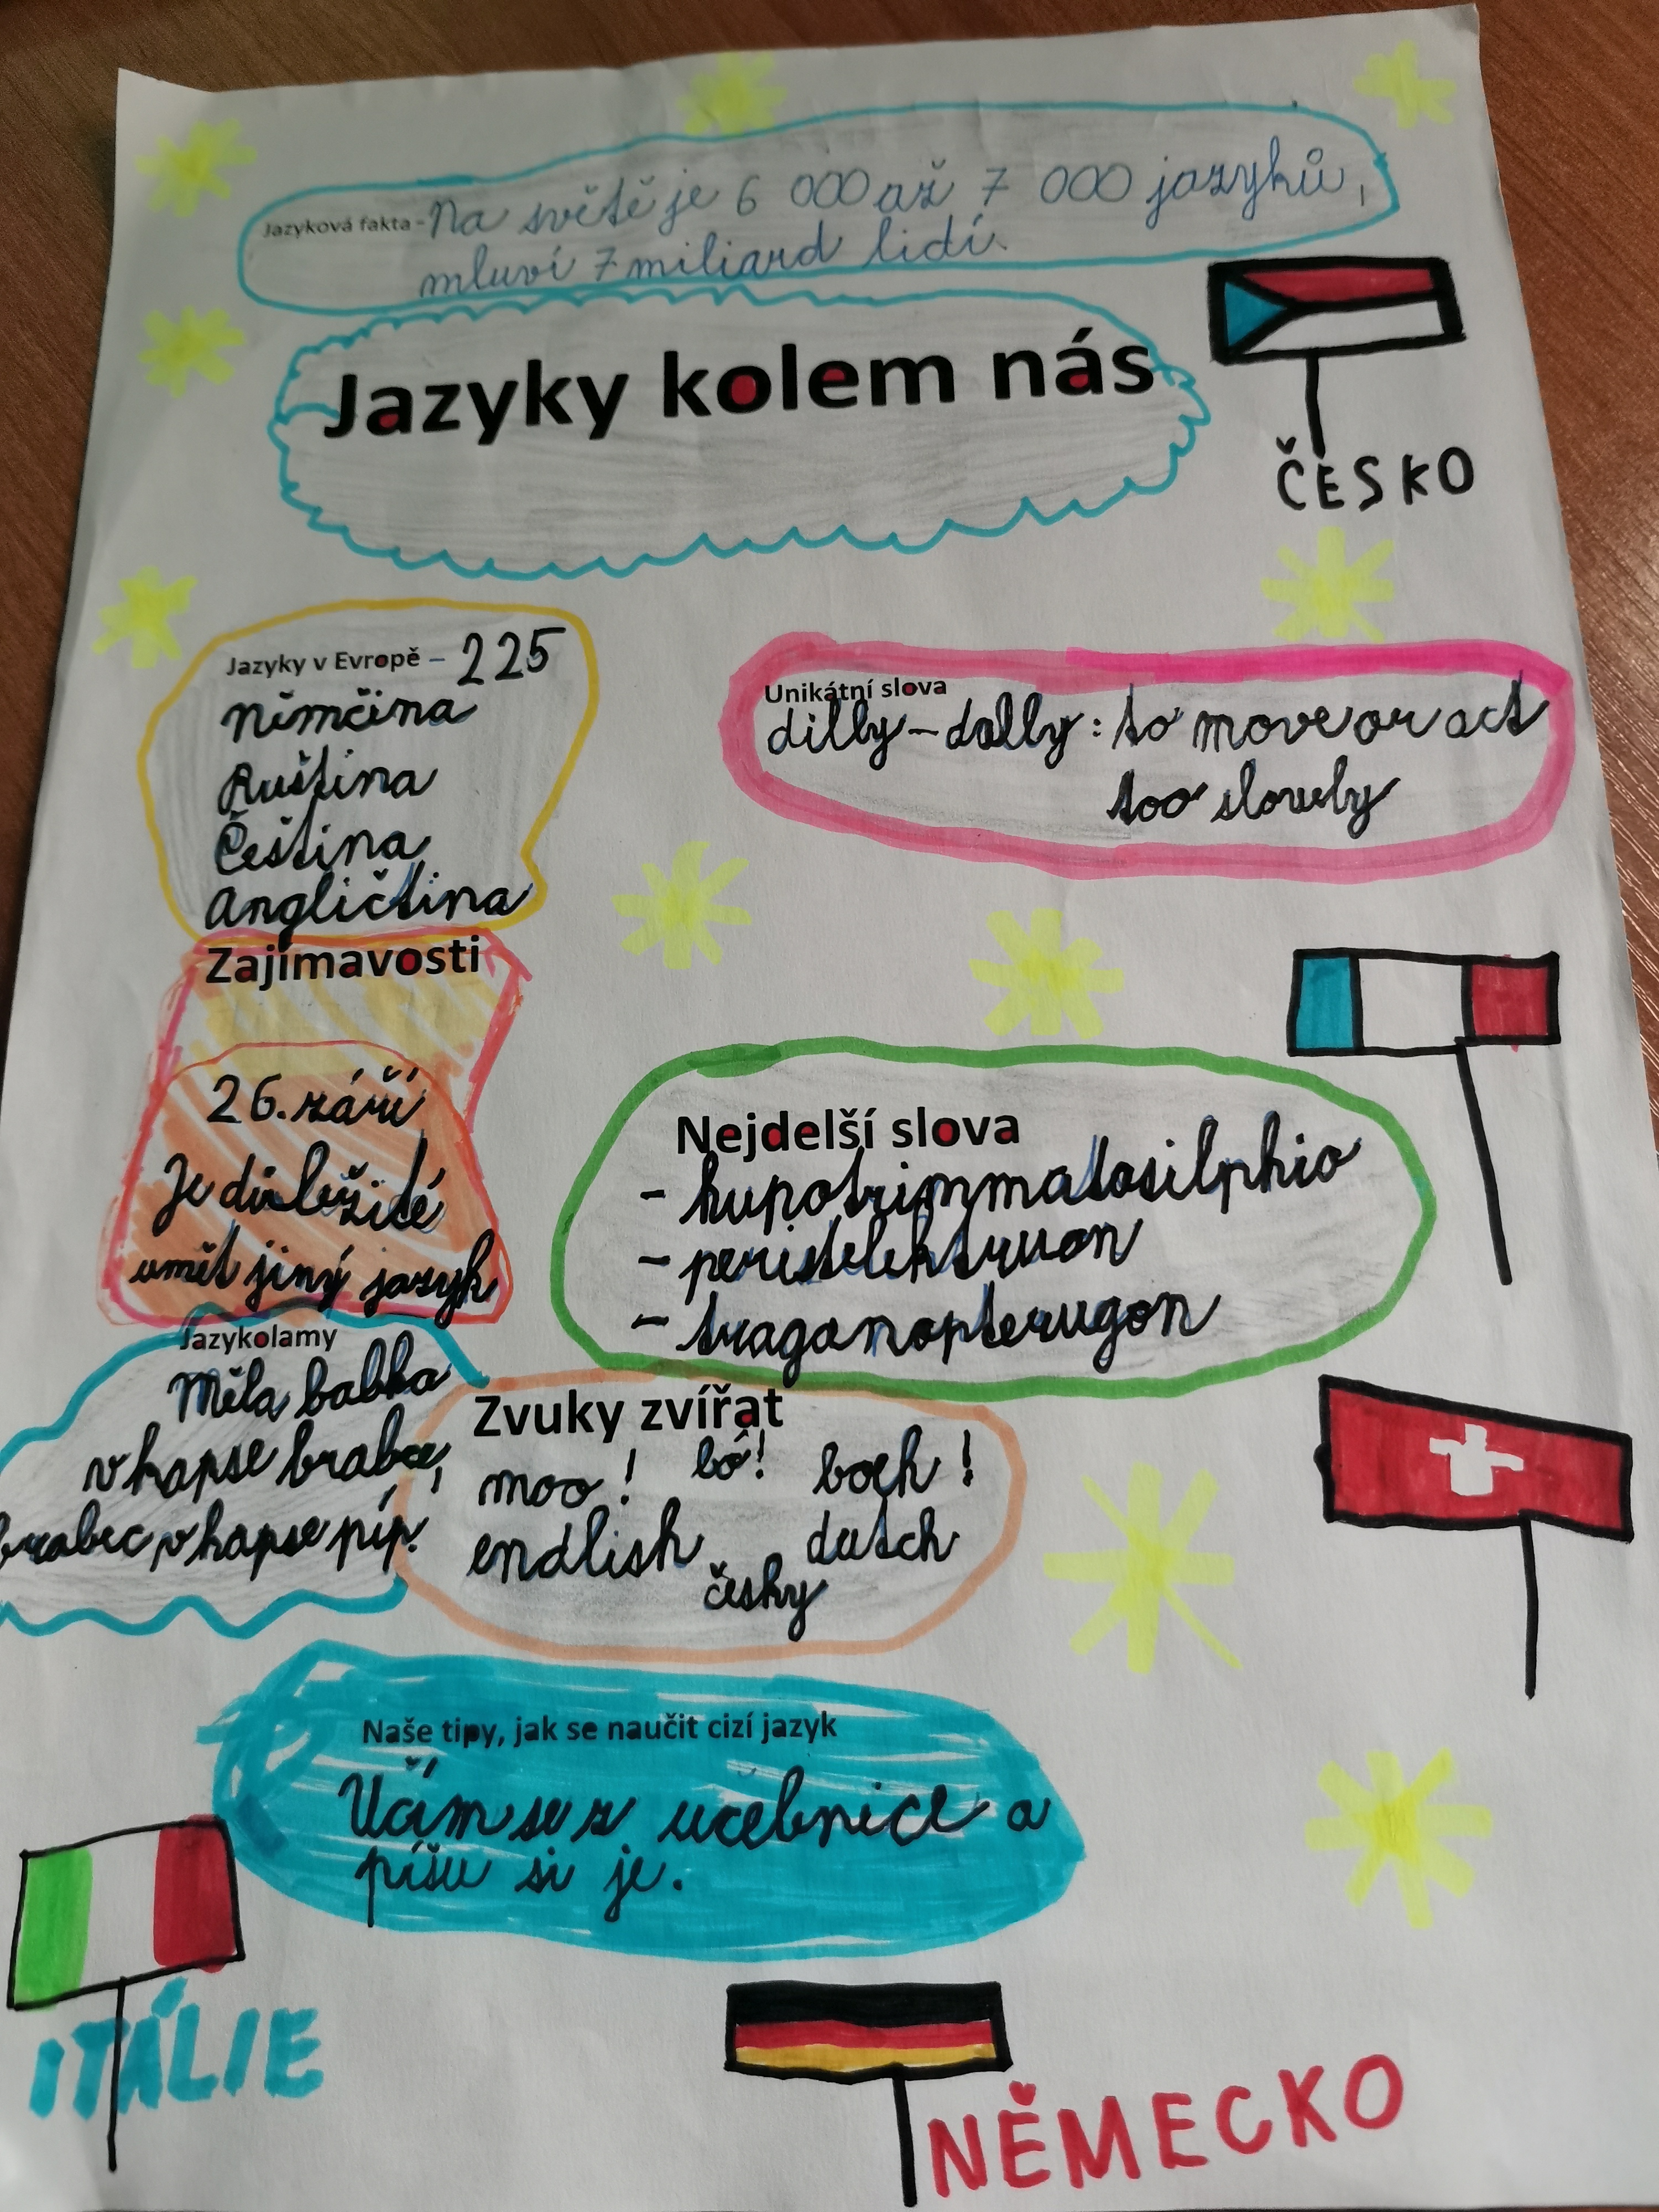 Jazyková fakta - Na světě je 6 000 až 7 000 jazyků,
mluví 7 miliard lidí.
Jazyky kolem nás
ČESKO
Jazyky v Evropě - 225
Němčina
Ruština
Čeština
Angličtina
Unikátní slova
dilly-dally: to move or act
too slowly
Zajímavosti
26. září
Je důležité
umět jiný jazyk
Nejdelší slova
- hupotrimmatosilphio
- peristelektruon
- traganopterugon
Jazykolamy
Měla babka
v kapse brabce,
brabec v kapse píp.
Zvuky zvířat
moo! bů! boeh!
endlish dutch
česky
Naše tipy, jak se naučit cizí jazyk
Učím se z učebnice a
píšu si je.
ITÁLIE
NĚMECKO